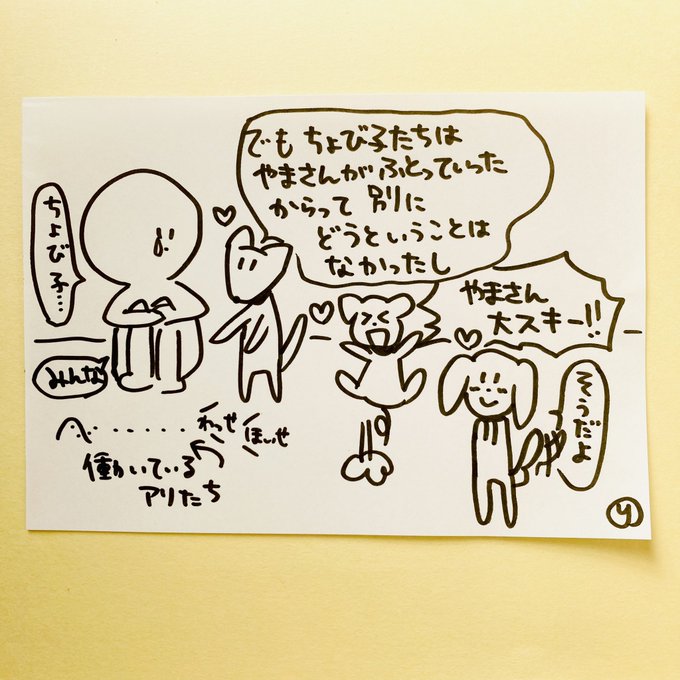 でもちょび子たちは
やまさんがふとっていった
からって別に
どうということは
なかったし
ちょび子…
みんな
やまさん
大スキー!!
そうだよ
わっせ
ほいせ
働いている
アリたち
y